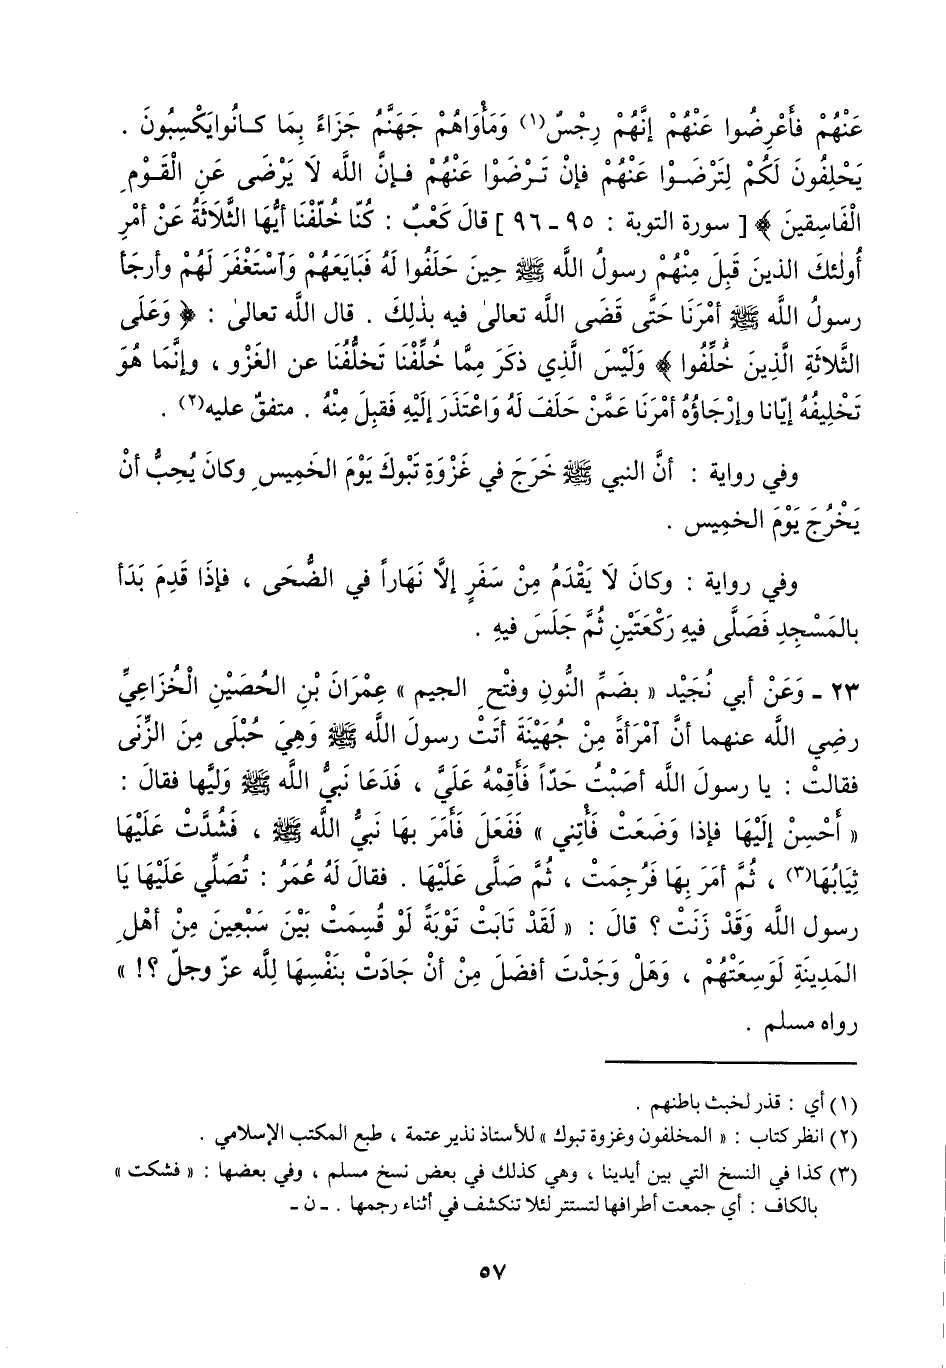 عَنْهُمْ فَأَعْرِضُوا عَنْهُمْ إنَّهُمْ رِجْسٌ(١) وَمَأْوَاهُمْ جَهَنَّمُ جَزَاءً بِمَا كـانُوا يَكْسِبُونَ .
يَحْلِفُونَ لَكُمْ لِتَرْضَـوْا عَنْهُمْ فإنْ تَـرْضَوْا عَنْهُمْ فـإنَّ اللَّه لَا يَرْضَى عَنِ الْقَـوْمِ
الْفَاسِقينَ ﴾ [ سورة التوبة : ٩٥ ـ ٩٦ ] قالَ كَعْبٌ : كُنَّا خُلِّفْنَا أيُّهَا الثَّلَاثَةُ عَنْ أمْرِ
أُولٰئكَ الذينَ قَبِلَ مِنْهُمْ رسولُ اللَّه ﷺ حِينَ حَلَفُوا لَهُ فَبَايَعَهُمْ وَٱسْتَغْفَرَ لَهُمْ وأرجَأ
رسولُ اللَّه ﷺ أمْرَنَا حَتَّى قَضَى اللَّه تعالىٰ فيه بذٰلِكَ . قال اللَّه تعالىٰ : ﴿ وَعَلَى
الثَّلاثَةِ الَّذِينَ خُلِّفُوا ﴾ وَلَيْسَ الَّذِي ذكَرَ مِمَّا خُلِّفْنَا تَخلُّفُنَا عن الغَزْو ، وإنَّمَا هُوَ
تَخْلِيفُهُ إيّانا وإرْجَاؤُهُ أمْرَنَا عَمَّنْ حَلَفَ لَهُ وَاعْتَذَرَ إلَيْهِ فَقَبِلَ مِنْهُ . متفقٌ عليه(٢) .
وفي رواية : أنَّ النبي ﷺ خَرَجَ في غَزْوَةِ تَبُوكَ يَوْمَ الخَمِيسِ وكانَ يُحِبُّ أنْ
يَخْرُجَ يَوْمَ الخمِيس .
وفي رواية : وكانَ لَا يَقْدَمُ مِنْ سَفَرٍ إلَّا نَهَاراً في الضُّحَى ، فإذَا قَدِمَ بَدَأ
بالمَسْجِدِ فَصَلَّى فيهِ رَكْعَتَيْنِ ثُمَّ جَلَسَ فيهِ .
٢٣ ـ وَعَنْ أبي نُجَيْد « بضَمِّ النُّونِ وفتْحِ الجيم » عِمْرَانَ بْنِ الحُصَيْنِ الْخُزَاعِيِّ
رضِي اللَّه عنهما أنَّ ٱمْرَأةً مِنْ جُهَيْنَةَ أتَتْ رسولَ اللَّه ﷺ وَهِيَ حُبْلَى مِنَ الزِّنَى
فقالتْ : يا رسولَ اللَّه أصَبْتُ حَدّاً فَأَقِمْهُ عَلَيَّ ، فَدَعَا نَبيُّ اللَّه ﷺ وَليَّها فقالَ :
« أَحْسِنْ إلَيْهَا فإذا وَضَعَتْ فَأْتِني » فَفَعَلَ فَأَمَرَ بهَا نَبيُّ اللَّه ﷺ ، فَشُدَّتْ عَلَيْهَا
ثِيَابُهَا(٣) ، ثُمَّ أمَرَ بِهَا فَرُجِمَتْ ، ثُمَّ صَلَّى عَلَيْهَا . فقالَ لَهُ عُمَرُ : تُصَلِّي عَلَيْهَا يَا
رسول اللَّه وَقَدْ زَنَتْ ؟ قالَ : « لَقَدْ تَابَتْ تَوْبَةً لَوْ قُسِمَتْ بَيْنَ سَبْعِينَ مِنْ أهْلِ
المَدِينَةِ لَوَسِعَتْهُمْ ، وَهَلْ وَجَدْتَ أفضَلَ مِنْ أنْ جَادَتْ بنَفْسِهَا لِلَّه عزّ وجلّ ؟! »
رواه مسلم .
(١) أي : قذر لخبث باطنهم .
(٢) انظر كتاب : « المخلفون وغزوة تبوك » للأستاذ نذير عتمة ، طبع المكتب الإسلامي .
(٣) كذا في النسخ التي بين أيدينا ، وهي كذلك في بعض نسخ مسلم ، وفي بعضها : « فشكت »
بالكاف : أي جمعت أطرافها لتستتر لئلا تنكشف في أثناء رجمها . ـ ن ـ
٥٧